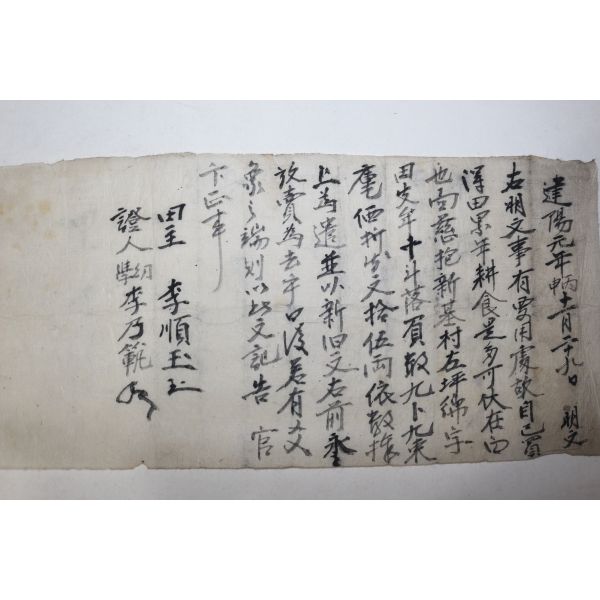 建陽元年丙申十二月二十九日 明文
右明文事有要用處故自己買
得田累年耕食是多可伏在向
也面慈抱新基村左坪綿字
田 十斗落負數九卜九束
庫価折錢文拾伍兩依數捧
上為遣並以新旧文右前永
放賣為去乎日後若有爻
象之端則以此文記告 官
卞正事
田主 李順玉
證人 李乃範